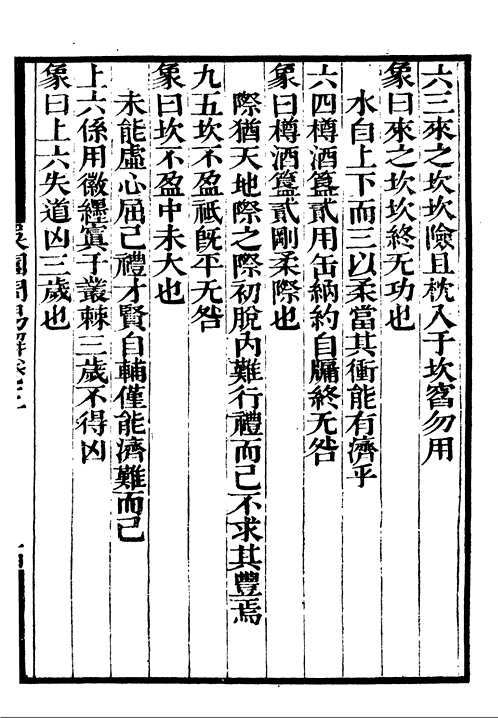 六三來之坎坎險且枕入于坎窞勿用
象曰來之坎坎終无功也
水自上下而三以柔當其衝能有濟乎
六四樽酒簋貳用缶納約自牖終无咎
象曰樽酒簋貳剛柔際也
際猶天地際之際初脫内難行禮而已不求其豐焉
九五坎不盈祇旣平无咎
象曰坎不盈中未大也
未能虛心屈己禮才賢自輔僅能濟難而已
上六係用徽纆寘于叢棘三歲不得凶
象曰上六失道凶三歲也